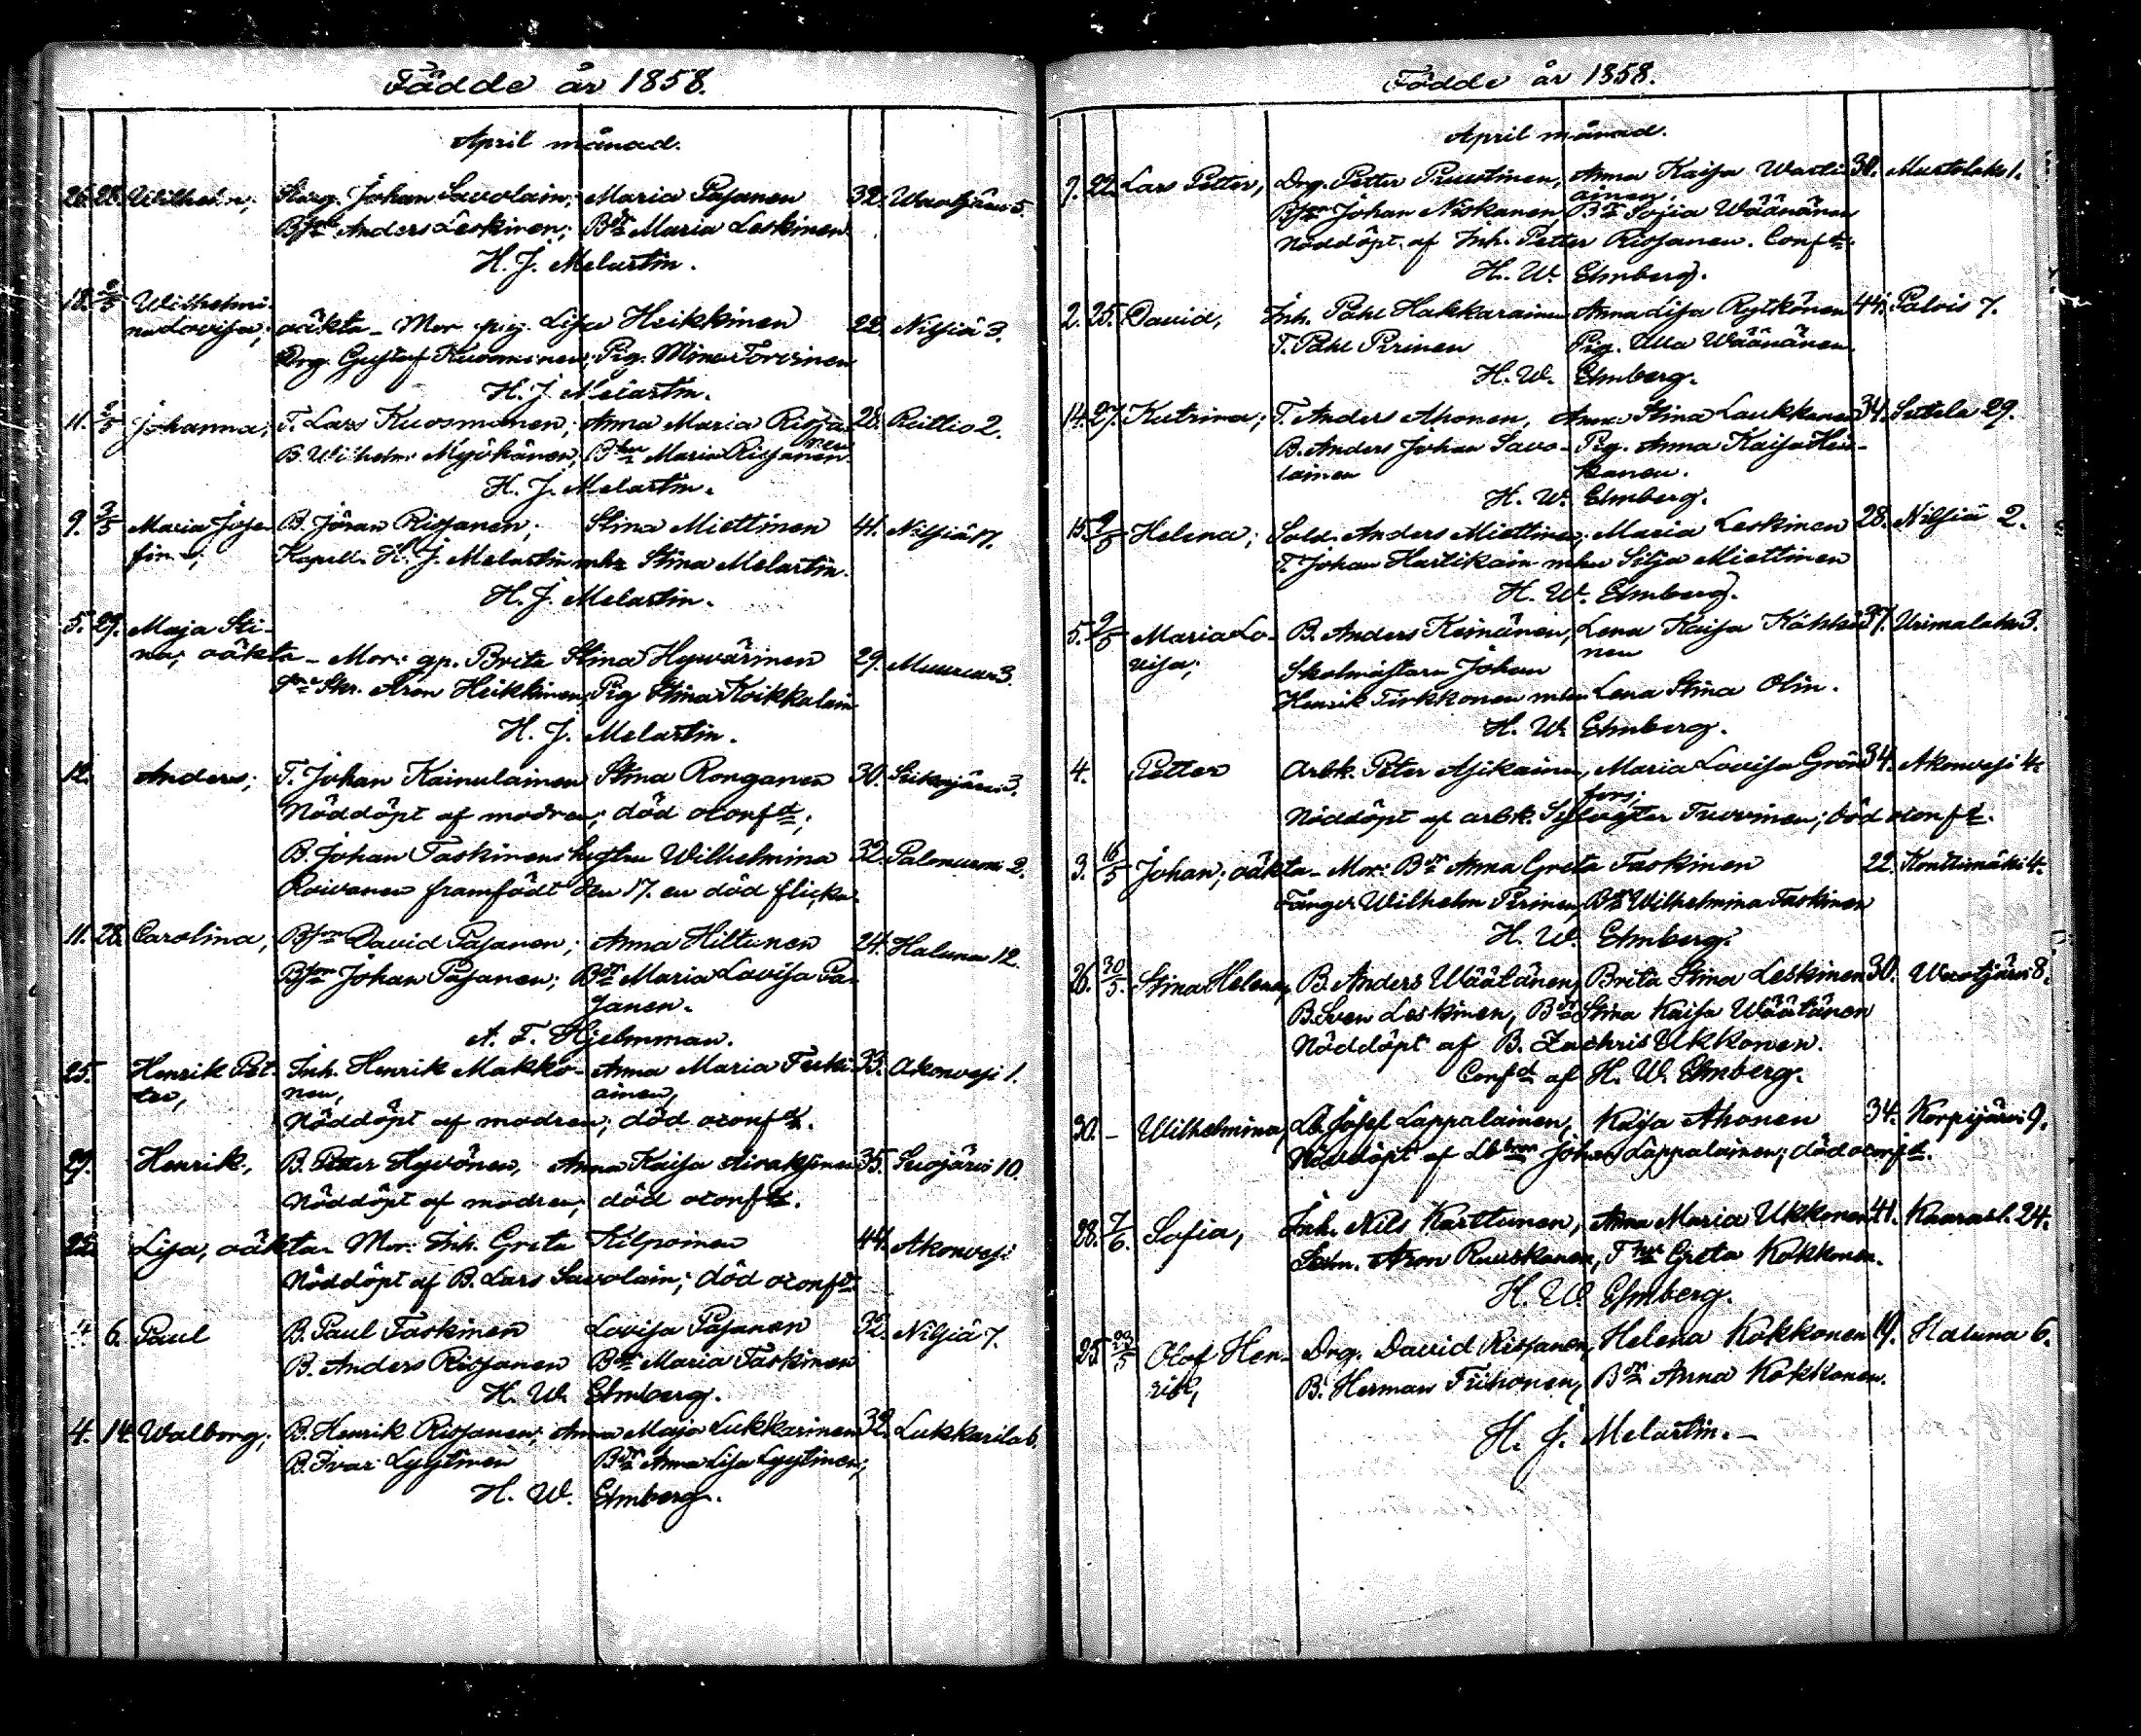 Födde år 1858.
April månad.
26. 28. Wilhelm; Skrg. Johan Savolain; Maria Pasanen 32. Waotjärvi 5.
Bson Anders Leskinen; Bdr Maria Leskinen
H. J. Melartin.
18. 2/5 Wilhelmi-
na Lovisa; oäkta - Mor pig. Lisa Heikkinen 22. Nilsiä 3.
Drg. Gustaf Kuosmanen; Pig. Mina Torvinen
H. J. Melartin.
11. 2/5 Johanna; T. Lars Kuosmanen; Anna Maria Rissa- 28. Reittio 2.
nen
B. Wilhelm Myöhänen; Bhu Maria Rissanen
H. J. Melartin.
9. 2/5 Maria Jose- B. Jöran Rissanen; Stina Miettinen 41. Nilsiä 17.
fina; Kapell. H. J. Melartin mhu Stina Melartin.
H. J. Melartin.
5. 29. Maja Sti-
na; oäkta - Mor: gp. Brita Stina Hyvärinen 29. Muuruv 3.
Skr. Aron Heikkinen; Pig Stina Koikkalain
H. J. Melartin.
12. Anders; T. Johan Kainulainen Stina Ronganen 30. 3.
Nöddöpt af modren; död oconft;
B. Johan Taskinens hustru Wilhelmina 32. Palonurmi 2.
Roivanen framfödt den 17. en död flicka.
11. 28. Carolina; Bson David Pasanen; Anna Hiltunen 24. Haluna 12.
Bson Johan Pasanen; Bdr Maria Lovisa Pa-
sanen.
A. F. Hjelmman.
25. Henrik Pet- Inh. Henrik Makko- Anna Maria Terki- 33. Akonvesi 1.
ter, nen, ainen,
Nöddöpt af modren; död oconft.
29. Henrik, B. Petter Hyvönen, Anna Kaisa Airaksinen 35. Suojärvi 10.
Nöddöpt af modren; död oconft.
22. Lisa, oäkta - Mor: Inh. Greta Kilpoinen 44. Akonvesi
Nöddöpt af B. Lars Savolain; död oconft.
4. 6. Paul B. Paul Taskinen Lovisa Pasanen 32. Nilsiä 7.
B. Anders Rissanen Bdr Maria Taskinen
H. W. Elmberg.
4. 14. Walborg; B. Henrik Rissanen; Anna Maja Lukkarinen 32. Lukkarila 6.
B. Ivar Lyytinen Bdr Anna Lisa Lyytinen;
H. W. Elmberg.
Födde år 1858.
April månad.
9. 22. Lars Petter, Drg. Petter Puustinen, Anna Kaisa Warti- 30. Mustolaks 1.
ainen,
Bson Johan Niskanen Bdr Sofia Wäänänen
Nöddöpt af Inh. Petter Rissanen. Conft.
H. W. Elmberg.
2. 25. David, Inh. Påhl Hakkarainen, Anna Lisa Rytkönen 44. Palois 7.
T. Påhl Pirinen Pig. Ulla Wäänänen.
H. W. Elmberg.
14. 27. Katrina; T. Anders Ahonen, Anna Stina Laukkanen 34. Sutela 29.
B. Anders Johan Savo- Pig. Anna Kaisa
lainen kanen.
H. W. Elmberg.
15. 9/5 Helena; Sold. Anders Miettinen; Maria Leskinen 28. Nilsiä 2.
T. Johan Hartikain mhu Silja Miettinen
H. W. Elmberg.
5. 9/5 Maria Lo- B. Anders Keinänen, Lena Kaisa Kähkö- 37. Urimalaks 3.
visa; nen
Skolmästarn Johan
Henrik Tirkkonen mhu Lena Stina Olin.
H. W. Elmberg.
4. Petter Arbk. Peter Asikainen, Maria Lovisa Grön- 34. Akonvesi 4.
fors;
Nöddöpt af arbk. Sylvester Tuovinen; död oconft.
3. 16/5 Johan; oäkta - Mor: Bdr Anna Greta Taskinen 22. Konttimäki 4.
Fånger Wilhelm Pirinen, Bdr Wilhelmina Taskinen
H. W. Elmberg.
26. 30/5. Stina Helena, B. Anders Wäätänen, Brita Stina Leskinen 30. Waotjärvi 8.
B. Sven Leskinen, Bdr Stina Kaisa Wäätänen
Nöddöpt af B. Zachris Ukkonen.
Confd af H. W. Elmberg.
30. - Wilhelmina, Lb. Josef Lappalainen, Kaisa Ahonen 34. Korpijärvi 9.
Nöddöpt af Lb Johan Lappalainen; död oconft.
28. 7/6. Sofia, Inh. Nils Karttunen, Anna Maria Ukkonen 41. Kaarasl. 24.
Aron Ruuskanen, Thu Greta Kokkonen.
H. W. Elmberg.
25. 23/5 Olof Hen- Drg. David Rissanen, Helena Kokkonen 19. Haluna 6.
rik, B. Herman Tiihonen, Bdr Anna Kokkonen.
H. J. Melartin. -